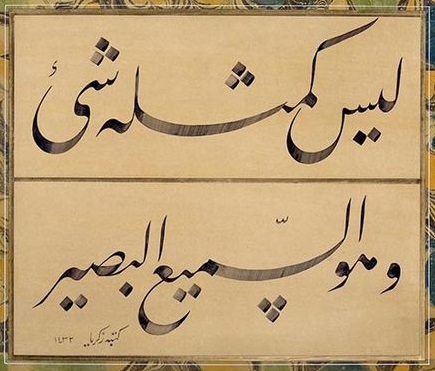 ليس كمثله شئ
وهو السّميع البصير
كتبه زكريا ١٤٣٢